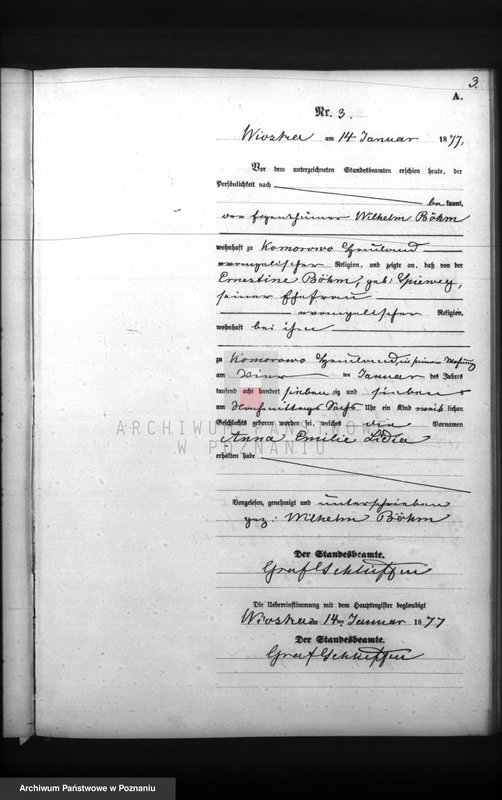 3.
A.
Nr. 3.
Wioska am 14 Januar 1877.
Vor dem unterzeichneten Standesbeamten erschien heute, der
Persönlichkeit nach
bekannt,
der Eigenthümer Wilhelm Böhm
wohnhaft zu Komorowo Hauland
evangelischer Religion, und zeigte an, daß von der
Ernestine Böhm, geb:
seiner Ehefrau
evangelischer Religion,
wohnhaft bei ihm
zu Komorowo Hauland, in seiner Wohnung
am ten Januar des Jahres
tausend acht hundert siebenzig und sieben
um Nachmittags Sechs Uhr ein Kind weiblichen
Geschlechts geboren worden sei, welches die Vornamen
ARCHIWUM PAŃSTWOWE
Anna Emilie Lidia
W POZNANIU
erhalten habe
Vorgelesen, genehmigt und unterschrieben
gez: Wilhelm Böhm
Der Standesbeamte.
Graf Schlieffen
Die Uebereinstimmung mit dem Hauptregister beglaubigt
Wioska am 14ten Januar 1877
Der Standesbeamte.
Graf Schlieffen
Archiwum Państwowe w Poznaniu